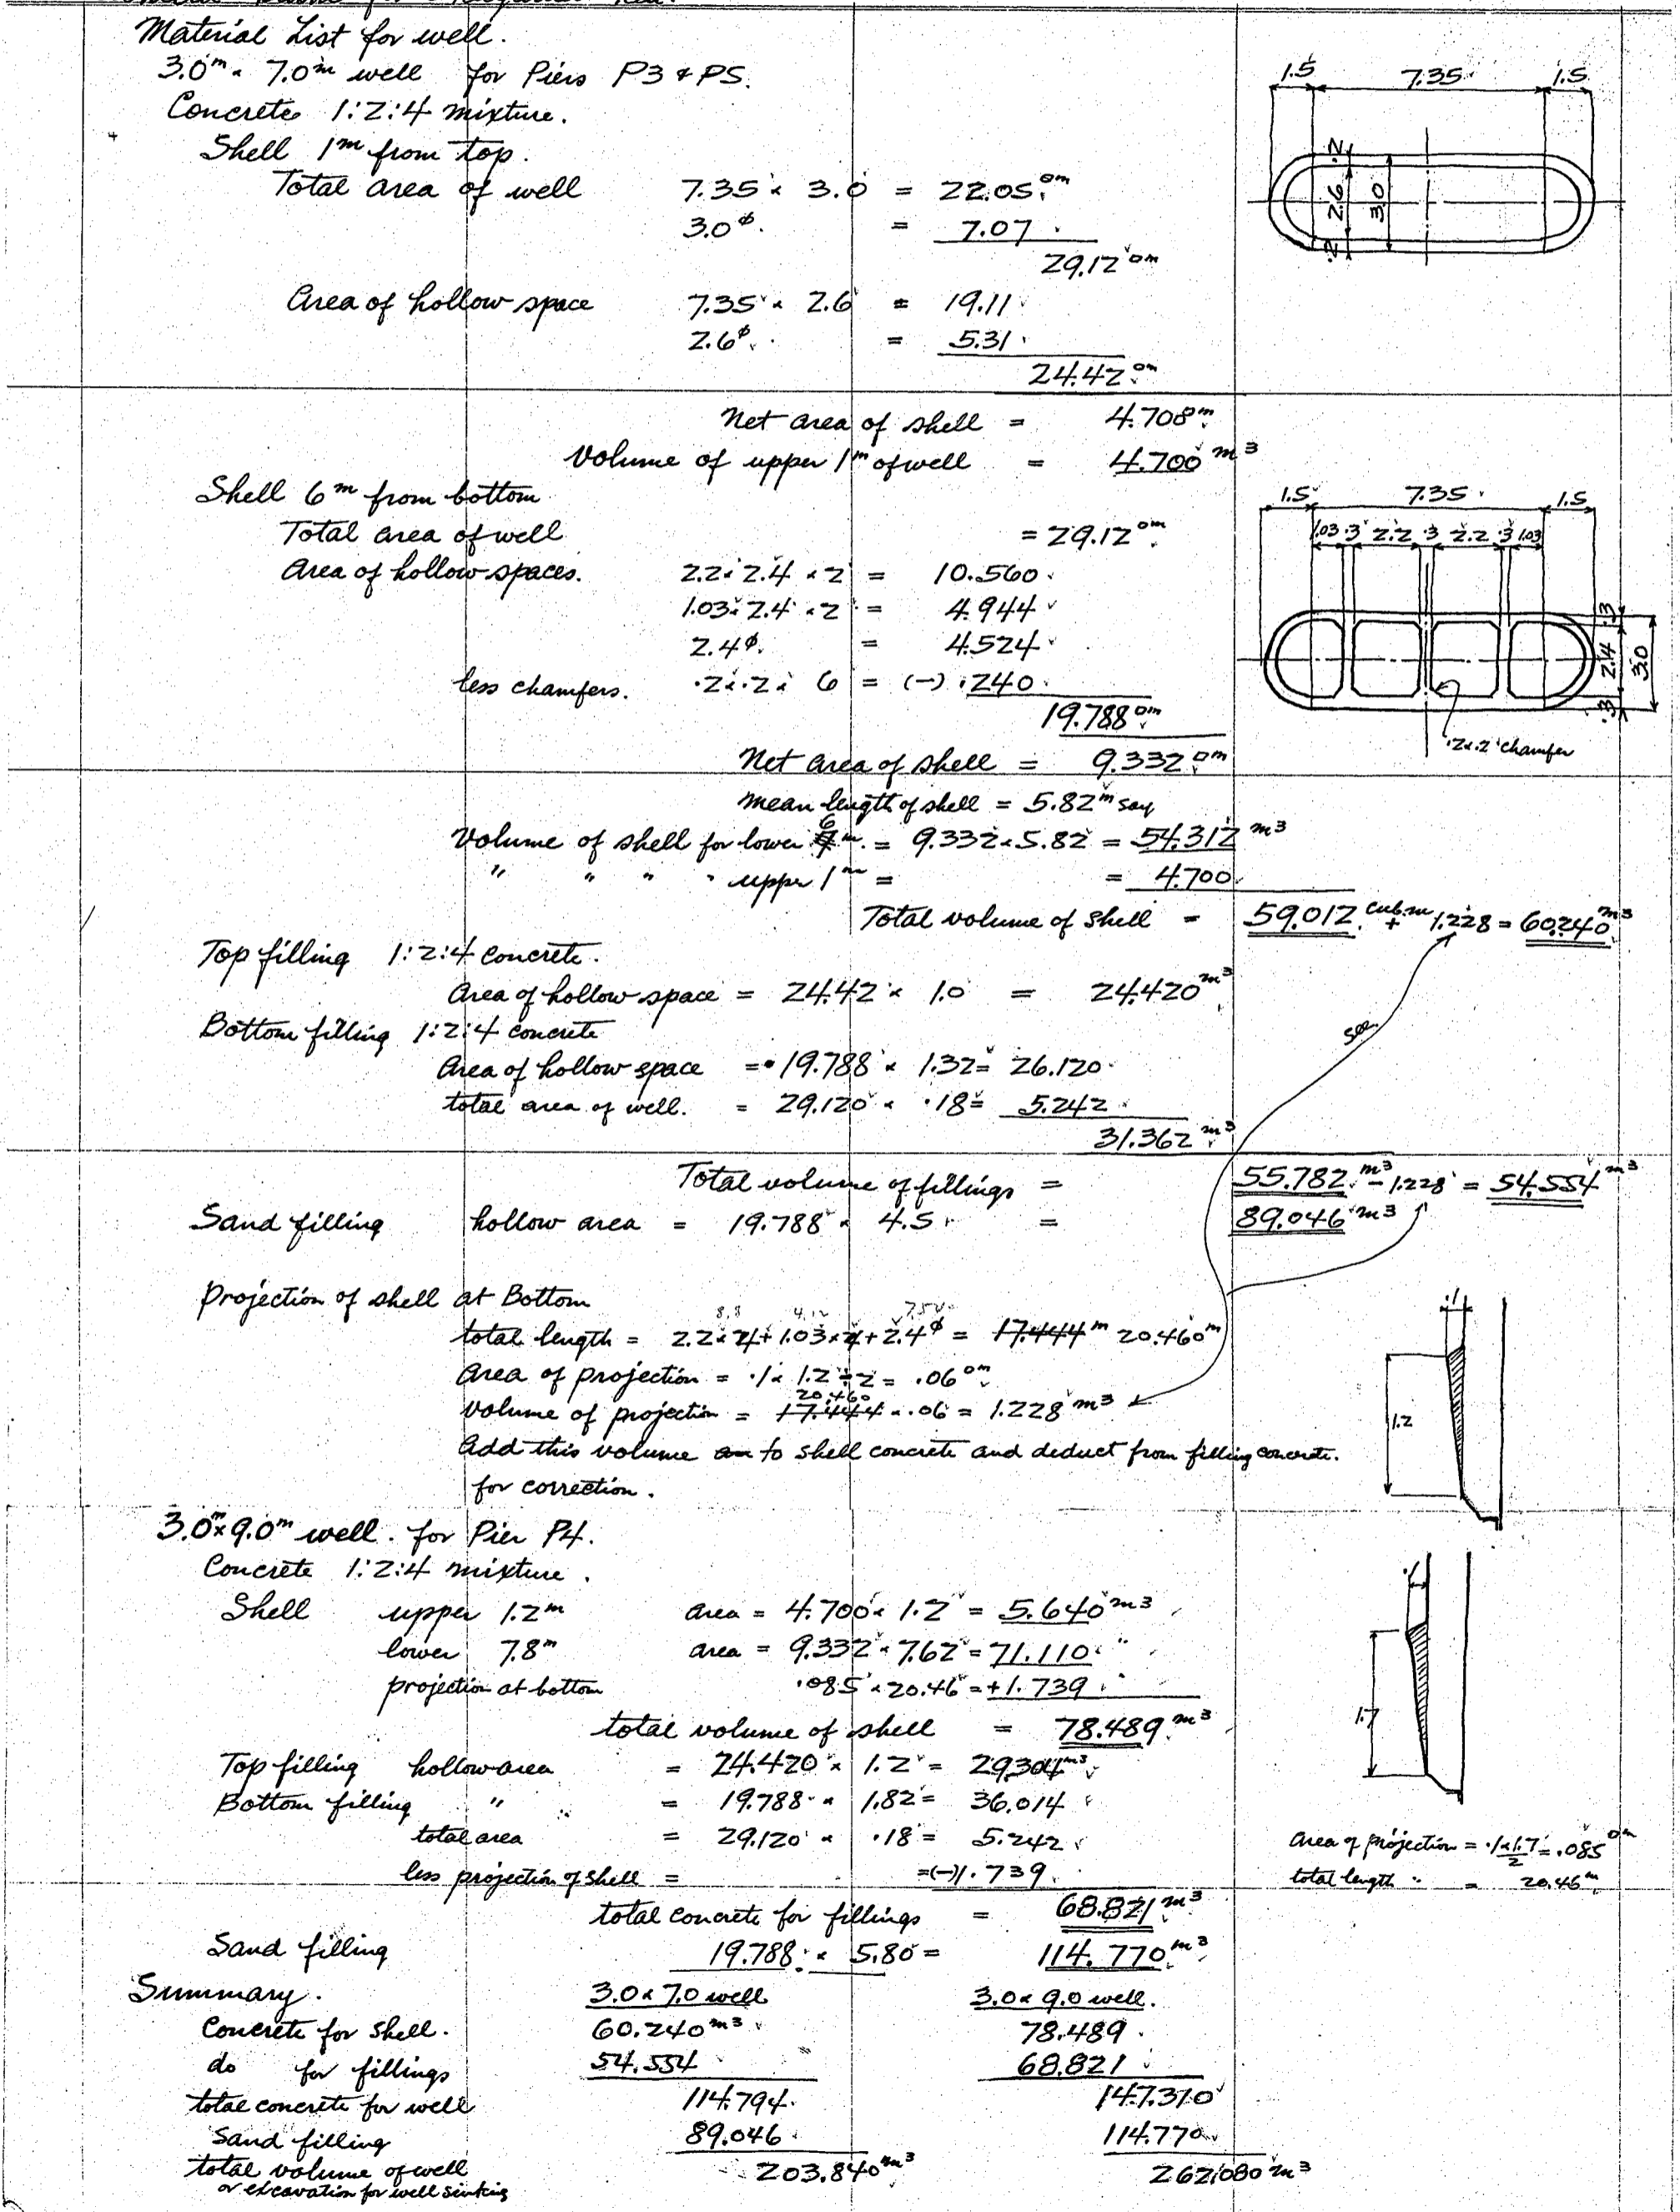 Material List for well.
3.0m × 7.0m well for Piers P3 & P5.
Concrete 1:2:4 mixture.
Shell 1m from top.
Total area of well 7.35 × 3.0 = 22.05 □m
3.0φ. = 7.07
29.12 □m
Area of hollow space 7.35 × 2.6 = 19.11
2.6φ. = 5.31
24.42 □m
Net area of shell = 4.70 □m
Volume of upper 1m of well = 4.700 m3
1.5 7.35 1.5
.2
2.6 3.0
.2
Shell 6m from bottom
Total area of well = 29.12 □m
Area of hollow spaces. 2.2 × 2.4 × 2 = 10.560
1.03 × 2.4 × 2 = 4.944
2.4φ. = 4.524
less chamfers. .2 × .2 × 6 = (-) .240
19.788 □m
Net area of shell = 9.332 □m
1.5 7.35 1.5
1.03 .3 2.2 .3 2.2 .3 1.03
.3
2.4 3.0
.3
.2×.2 chamfer
mean length of shell = 5.82m say
Volume of shell for lower 6m. = 9.332 × 5.82 = 54.312 m3
" " " " upper 1m = = 4.700
Total volume of shell = 59.012 cub.m + 1.228 = 60.240 m3
Top filling 1:2:4 concrete.
Area of hollow space = 24.42 × 1.0 = 24.420 m3
Bottom filling 1:2:4 concrete
Area of hollow space = 19.788 × 1.32 = 26.120
total area of well. = 29.120 × .18 = 5.242
31.362 m3
see
Total volume of fillings = 55.782 m3 - 1.228 = 54.554 m3
Sand filling hollow area = 19.788 × 4.5 = 89.046 m3
Projection of shell at Bottom
8.8 4.12 7.54
total length = 2.2 × 4 + 1.03 × 4 + 2.4φ = 17.444 m 20.460 m
Area of projection = .1 × 1.2 ÷ 2 = .06 □m
20.460
Volume of projection = 17.444 × .06 = 1.228 m3
Add this volume to shell concrete and deduct from filling concrete.
for correction.
.1
1.2
3.0m × 9.0m well. for Pier P4.
Concrete 1:2:4 mixture.
Shell upper 1.2m area = 4.700 × 1.2 = 5.640 m3
lower 7.8m area = 9.332 × 7.62 = 71.110 "
projection at bottom .085 × 20.46 = + 1.739
total volume of shell = 78.489 m3
Top filling hollow area = 24.420 × 1.2 = 29.304 m3
Bottom filling " = 19.788 × 1.82 = 36.014
total area = 29.120 × .18 = 5.242
less projection of shell = = (-) 1.739
total concrete for fillings = 68.821 m3
.1
1.7
Area of projection = .1×1.7/2 = .085 □m
total length " = 20.46 m
Sand filling 19.788 × 5.80 = 114.770 m3
Summary. 3.0 × 7.0 well 3.0 × 9.0 well.
Concrete for shell. 60.240 m3 78.489
do for fillings 54.554 68.821
total concrete for well 114.794 147.310
Sand filling 89.046 114.770
total volume of well 203.840 m3 262.080 m3
or excavation for well sinking